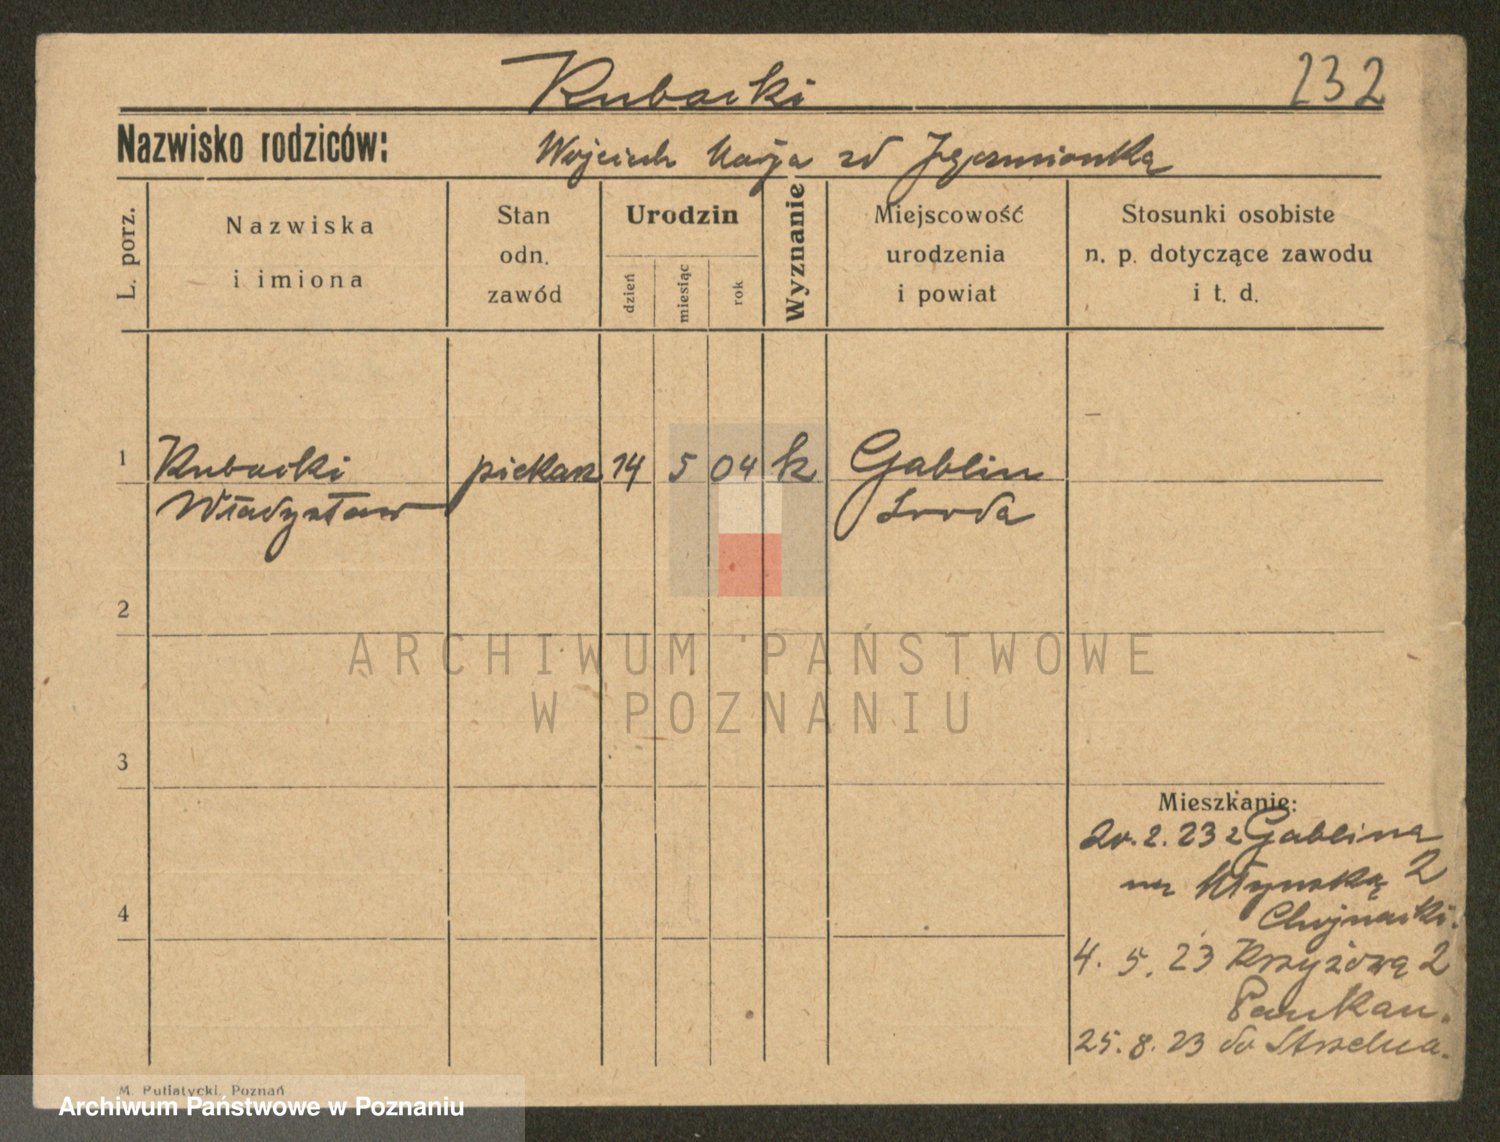 Rubacki
232
Nazwisko rodziców:
Wojciech Marja zd
L. porz.
Nazwiska
i imiona
Stan
odn.
zawód
Urodzin
dzień
miesiąc
rok
Wyznanie
Miejscowość
urodzenia
i powiat
Stosunki osobiste
n. p. dotyczące zawodu
i t. d.
1
Rubacki
Władysław
piekarz
14
5
04
k
Gablin
Sroda
2
ARCHIWUM PAŃSTWOWE
W POZNANIU
3
Mieszkanie:
20.2.23 z Gablina
na Młyńską 2
Chojnacki.
4
4. 5. 23 Krzyżową 2
25.8.23 do Strzelna.
M. Putiatycki, Poznań
Archiwum Państwowe w Poznaniu